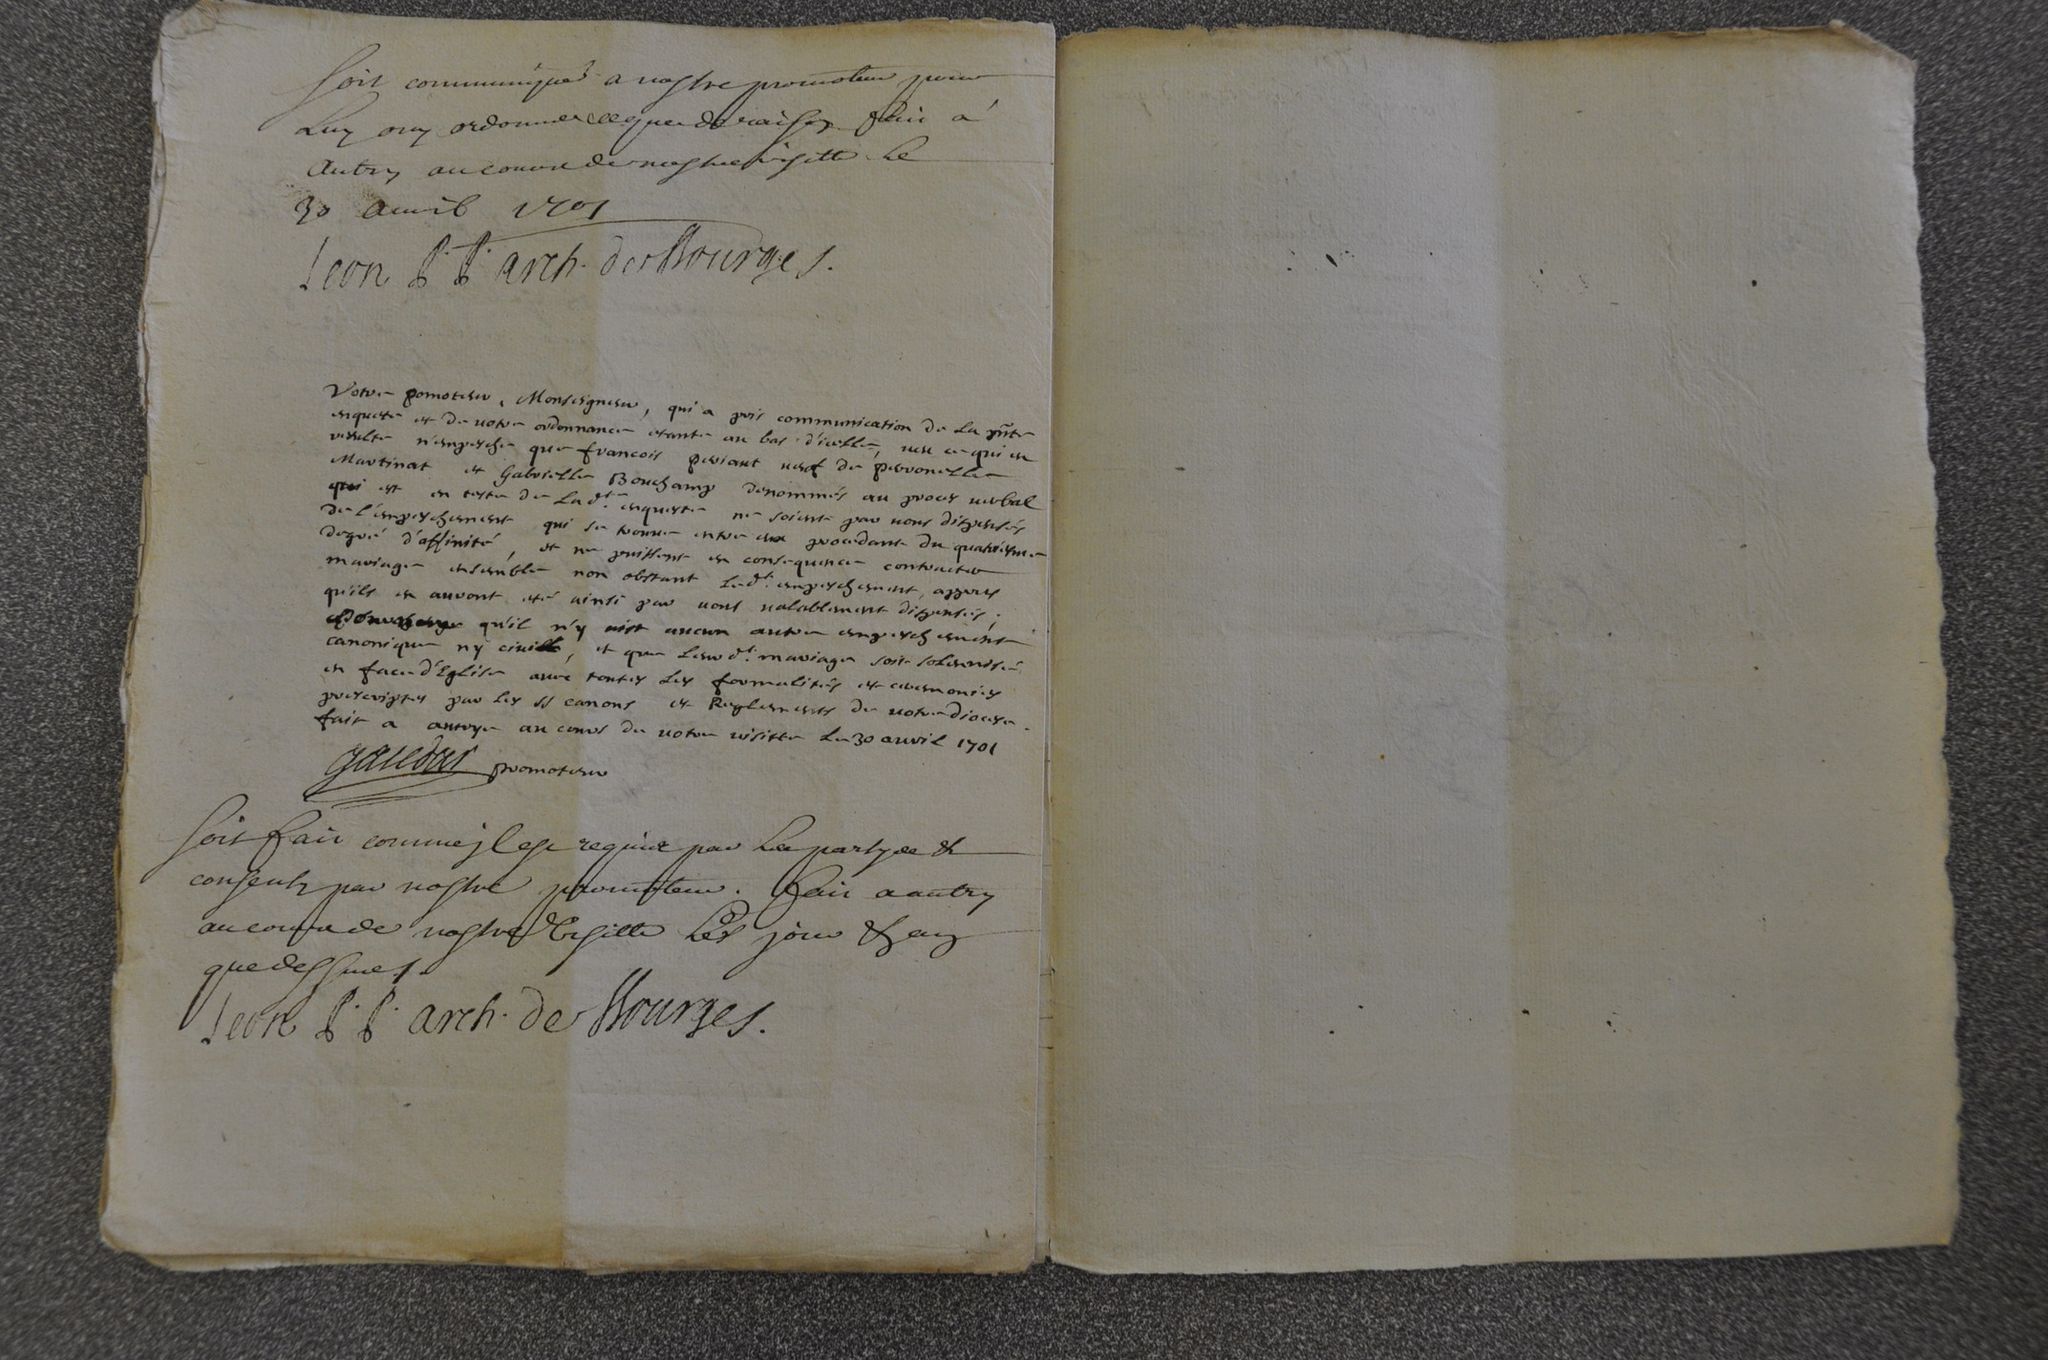 Soit communiqué a nostre promoteur pour
Luy ouy ordonner ce que de raison fait à
Autry au cours de nostre visitte le
30 auril 1701
Leon P. P. arch. de Bourges.
Votre pomoteur, Monseigneur, qui a pris communication de la pnte
enqueste et de votre ordonnance etante au bas d'icelle, veu ce qui en
resulte n'empesche que francois periaut veuf de peronelle
Martinat et Gabrielle Bouchamp denommés au proces verbal
qui est en teste de lad.te enqueste ne soient par vous dispensés
de l'empeschement qui se trouve entre eux procedant du quatriesme
degré d'affinité, et ne puissent en consequence contracter
mariage ensemble non obstant led.t empeschement, appres
qu'ils en auront eté ainsi par vous valablement dispensés;
qu'il n'y ait aucun autre empeschement
canonique ny civille, et que leurd.t mariage soit solennisé
en face d'Eglise avec toutes les formalités et ceremonies
prescriptes par les SS canons et Reglements de votre diocese.
fait a autrye au cours de votre visitte le 30 auril 1701
promoteur
Soit fait comme jl est requis par les partyes &
consenty par nostre promoteur. fait a autry
au cours de nostre Visitte les jour & an
que dessus.
Leon P. P. arch. de Bourges.